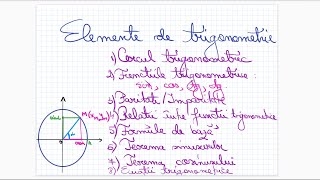 Elemente de trigonometrie
1) Cercul trigonometric
2) Funcțiile trigonometrice:
sin, cos, tg, ctg
3) Paritate/Imparitate
4) Relații între funcții trigonometrice
5) Formule de bază
6) Teorema sinusurilor
7) Teorema cosinusului
8) Ecuații trigonometrice